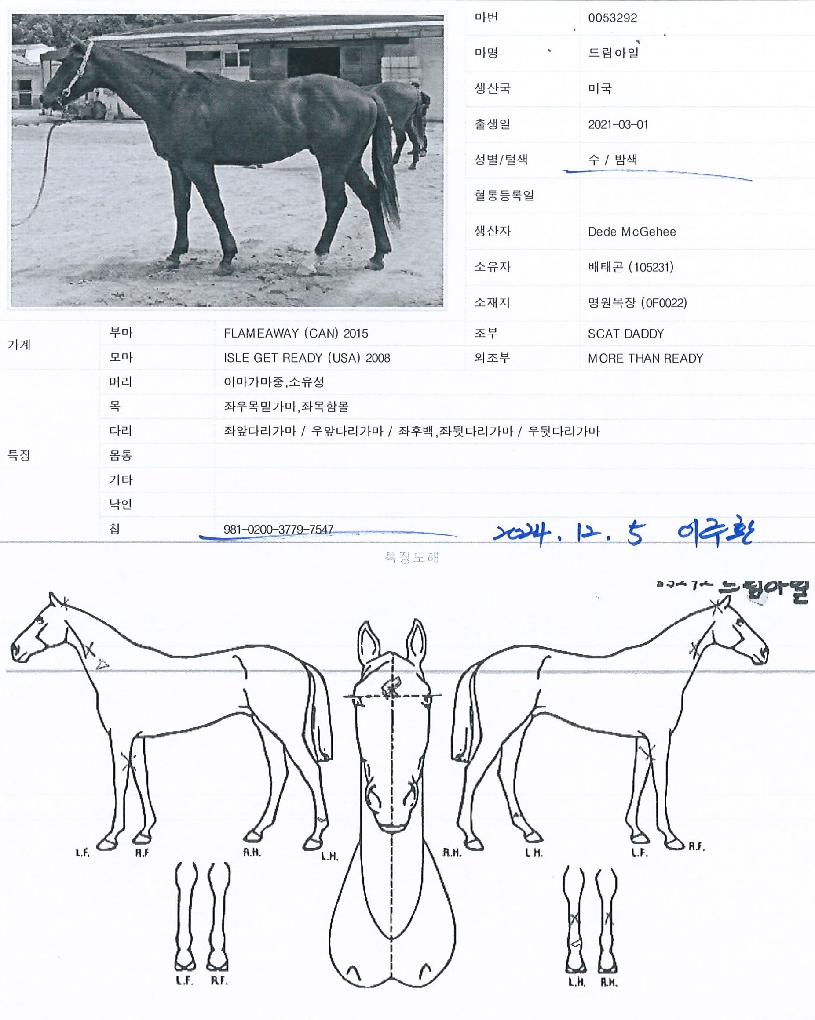 마번 0053292
마명 드림아일
생산국 미국
출생일 2021-03-01
성별/털색 수 / 밤색
혈통등록일
생산자 Dede McGehee
소유자 배태곤 (105231)
소재지 명원목장 (0F0022)
가계 부마 FLAMEAWAY (CAN) 2015 조부 SCAT DADDY
모마 ISLE GET READY (USA) 2008 외조부 MORE THAN READY
특징 머리 이마가마중,소유성
목 좌우목밑가마,좌목함몰
다리 좌앞다리가마 / 우앞다리가마 / 좌후백,좌뒷다리가마 / 우뒷다리가마
몸통
기타
낙인
칩 981-0200-3779-7547
2024. 12. 5 이주환
특징도해
드림아일
L.F. R.F R.H. L.H. R.H. L.H. L.F. R.F.
L.F. R.F. L.H. R.H.